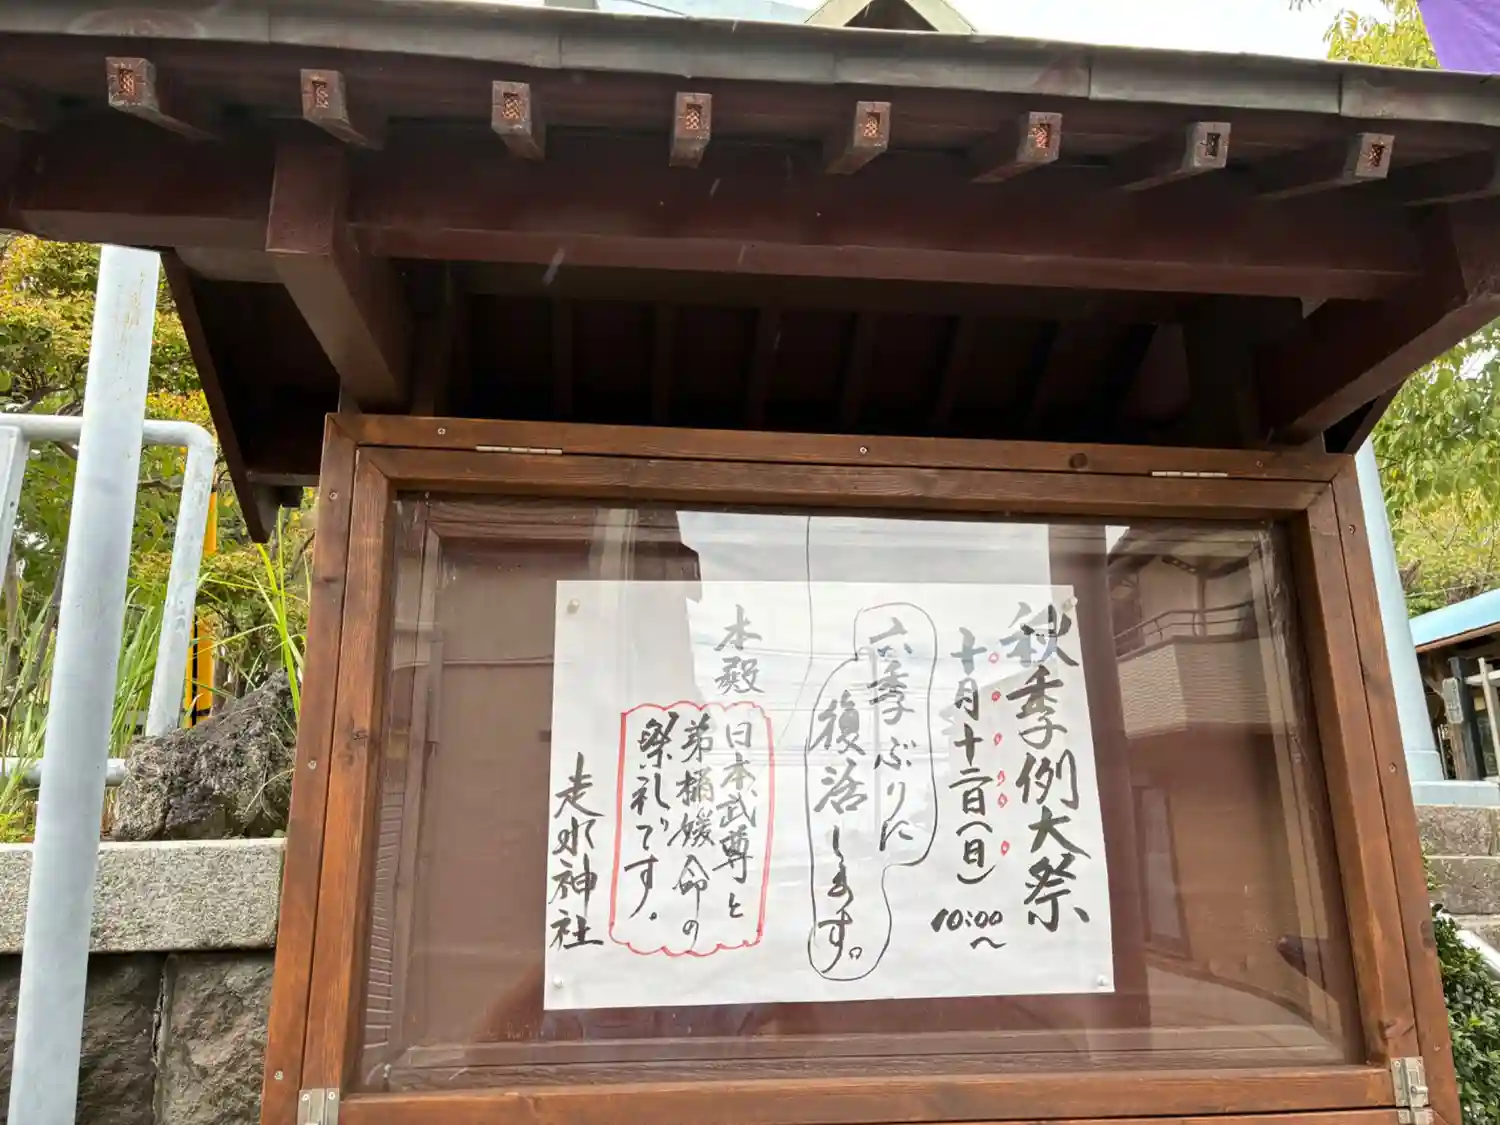 秋季例大祭
十月十二日(日)
10:00〜
六季ぶりに
復活します。
本殿
日本武尊と
弟橘媛命の
祭礼です.
走水神社